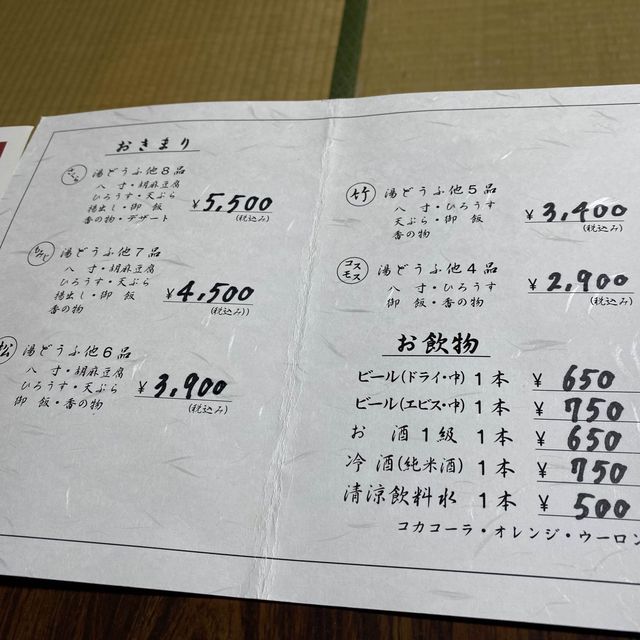 おきまり
さくら 湯どうふ他8品
八寸・胡麻豆腐
ひろうす・天ぷら
揚出し・御飯
香の物・デザート
¥5,500
(税込み)
もみじ 湯どうふ他7品
八寸・胡麻豆腐
ひろうす・天ぷら
揚出し・御飯
香の物
¥4,500
(税込み))
松 湯どうふ他6品
八寸・胡麻豆腐
ひろうす・天ぷら
御飯・香の物
¥3,900
(税込み))
竹 湯どうふ他5品
八寸・ひろうす
天ぷら・御飯
香の物
¥3,400
(税込み)
コスモス 湯どうふ他4品
八寸・ひろうす
御飯・香の物
¥2,900
(税込み))
お飲物
ビール(ドライ・中) 1本 ¥650
ビール(エビス・中) 1本 ¥750
お酒1級 1本 ¥650
冷酒(純米酒) 1本 ¥750
清涼飲料水 1本 ¥500
コカコーラ・オレンジ・ウーロン